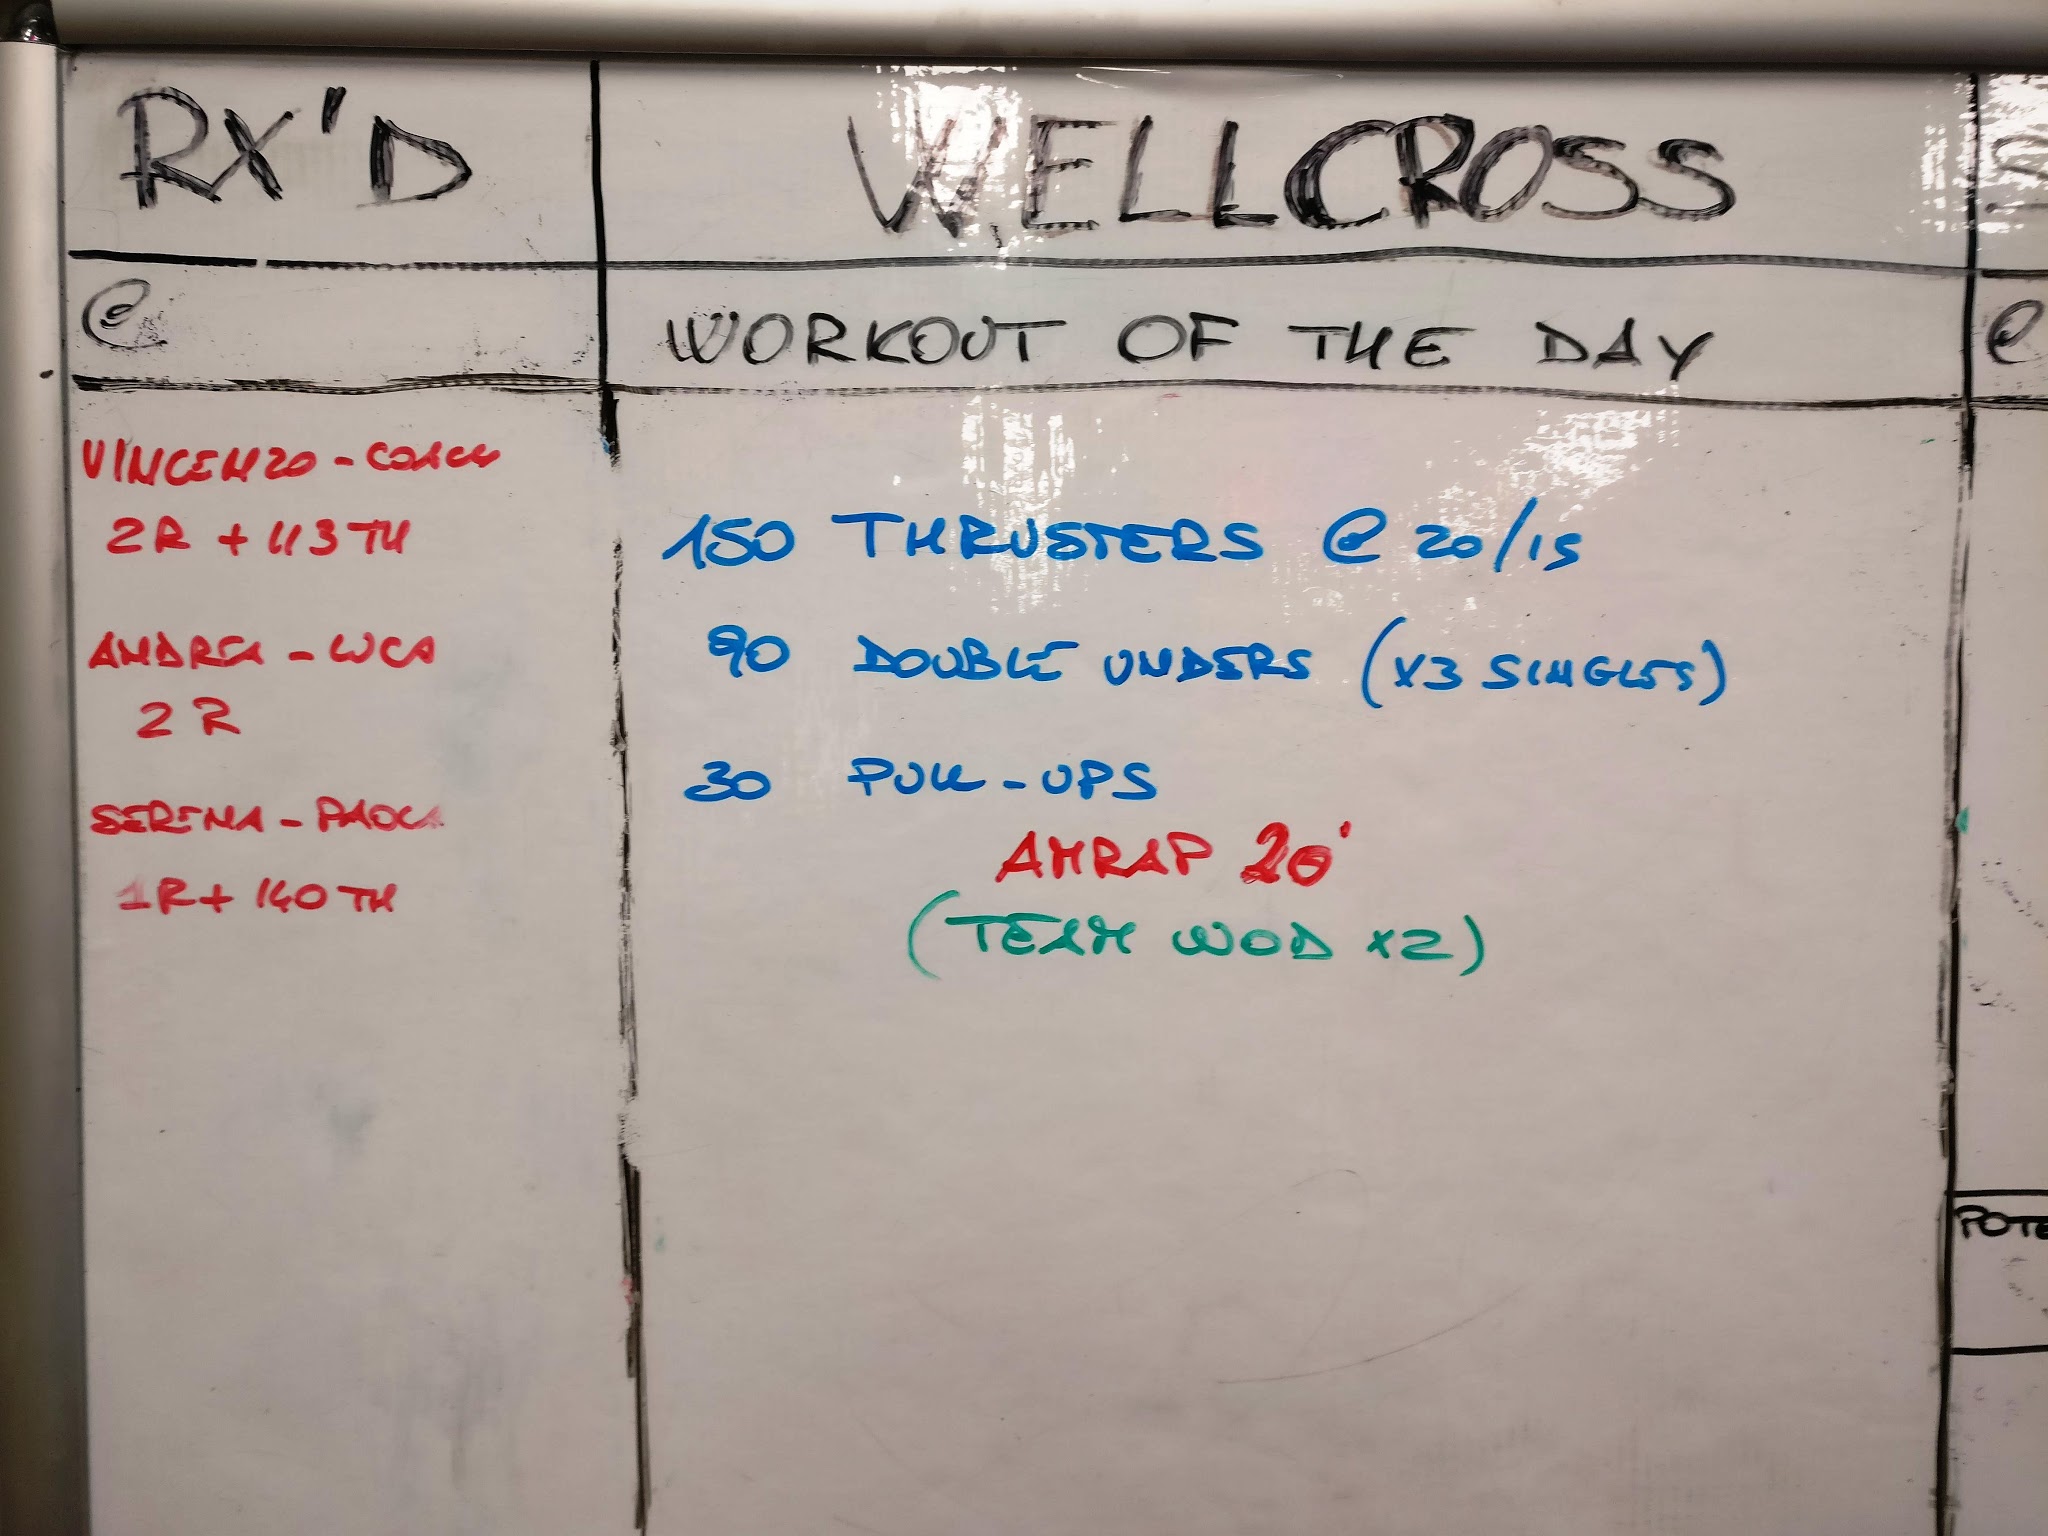 RX'D
@
VINCENZO - COACH
2R + 113 TH
ANDREA - LUCA
2 R
SERENA - PAOLA
1R + 140 TH
WELLCROSS
WORKOUT OF THE DAY
150 THRUSTERS @ 20/15
90 DOUBLE UNDERS (X3 SINGLES)
30 PULL-UPS
AMRAP 20'
(TEAM WOD X2)
S
@
POTE